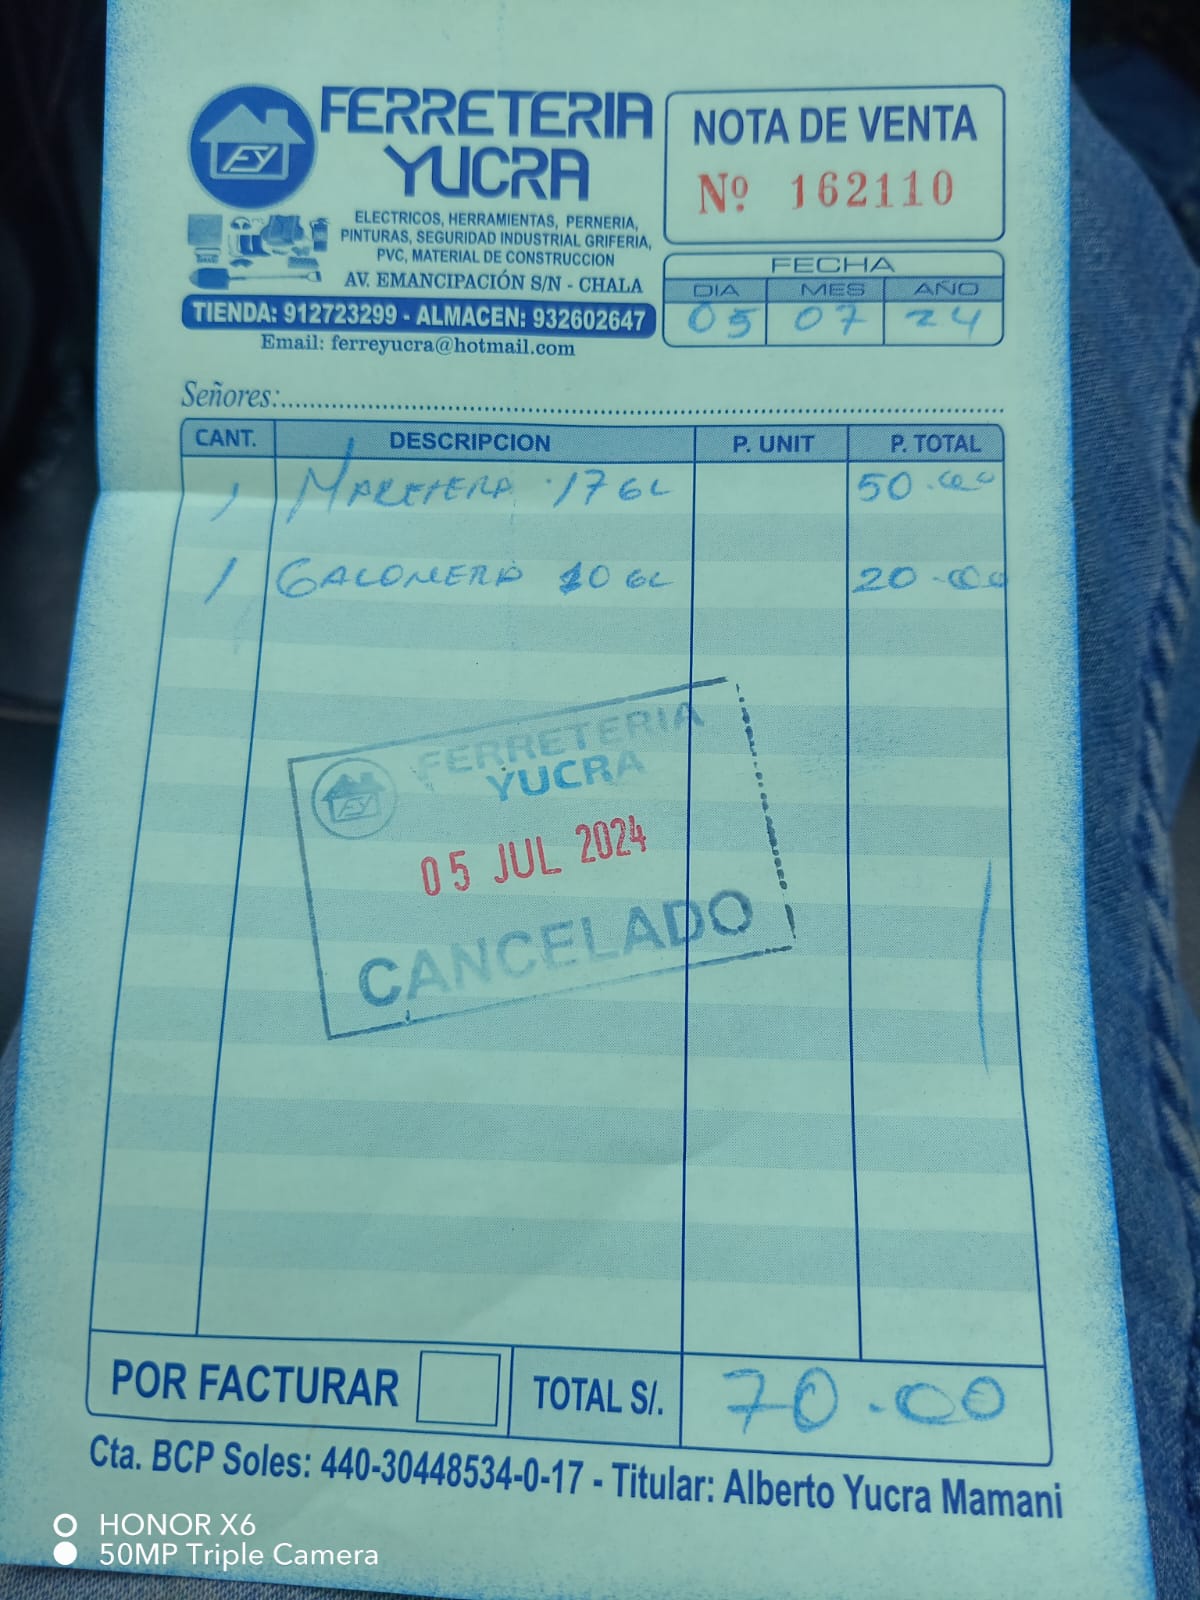 FERRETERIA
YUCRA
FY
ELECTRICOS, HERRAMIENTAS, PERNERIA,
PINTURAS, SEGURIDAD INDUSTRIAL GRIFERIA,
PVC, MATERIAL DE CONSTRUCCION
AV. EMANCIPACIÓN S/N - CHALA
TIENDA: 912723299 - ALMACEN: 932602647
Email: ferreyucra@hotmail.com
NOTA DE VENTA
Nº 162110
FECHA
DIA MES AÑO
05 07 24
Señores:
CANT. DESCRIPCION P. UNIT P. TOTAL
1 17 GL 50.00
1 GALONERA 10 GL 20.00
FERRETERIA
YUCRA
FY
05 JUL 2024
CANCELADO
POR FACTURAR TOTAL S/. 70.00
Cta. BCP Soles: 440-30448534-0-17 - Titular: Alberto Yucra Mamani
HONOR X6
50MP Triple Camera